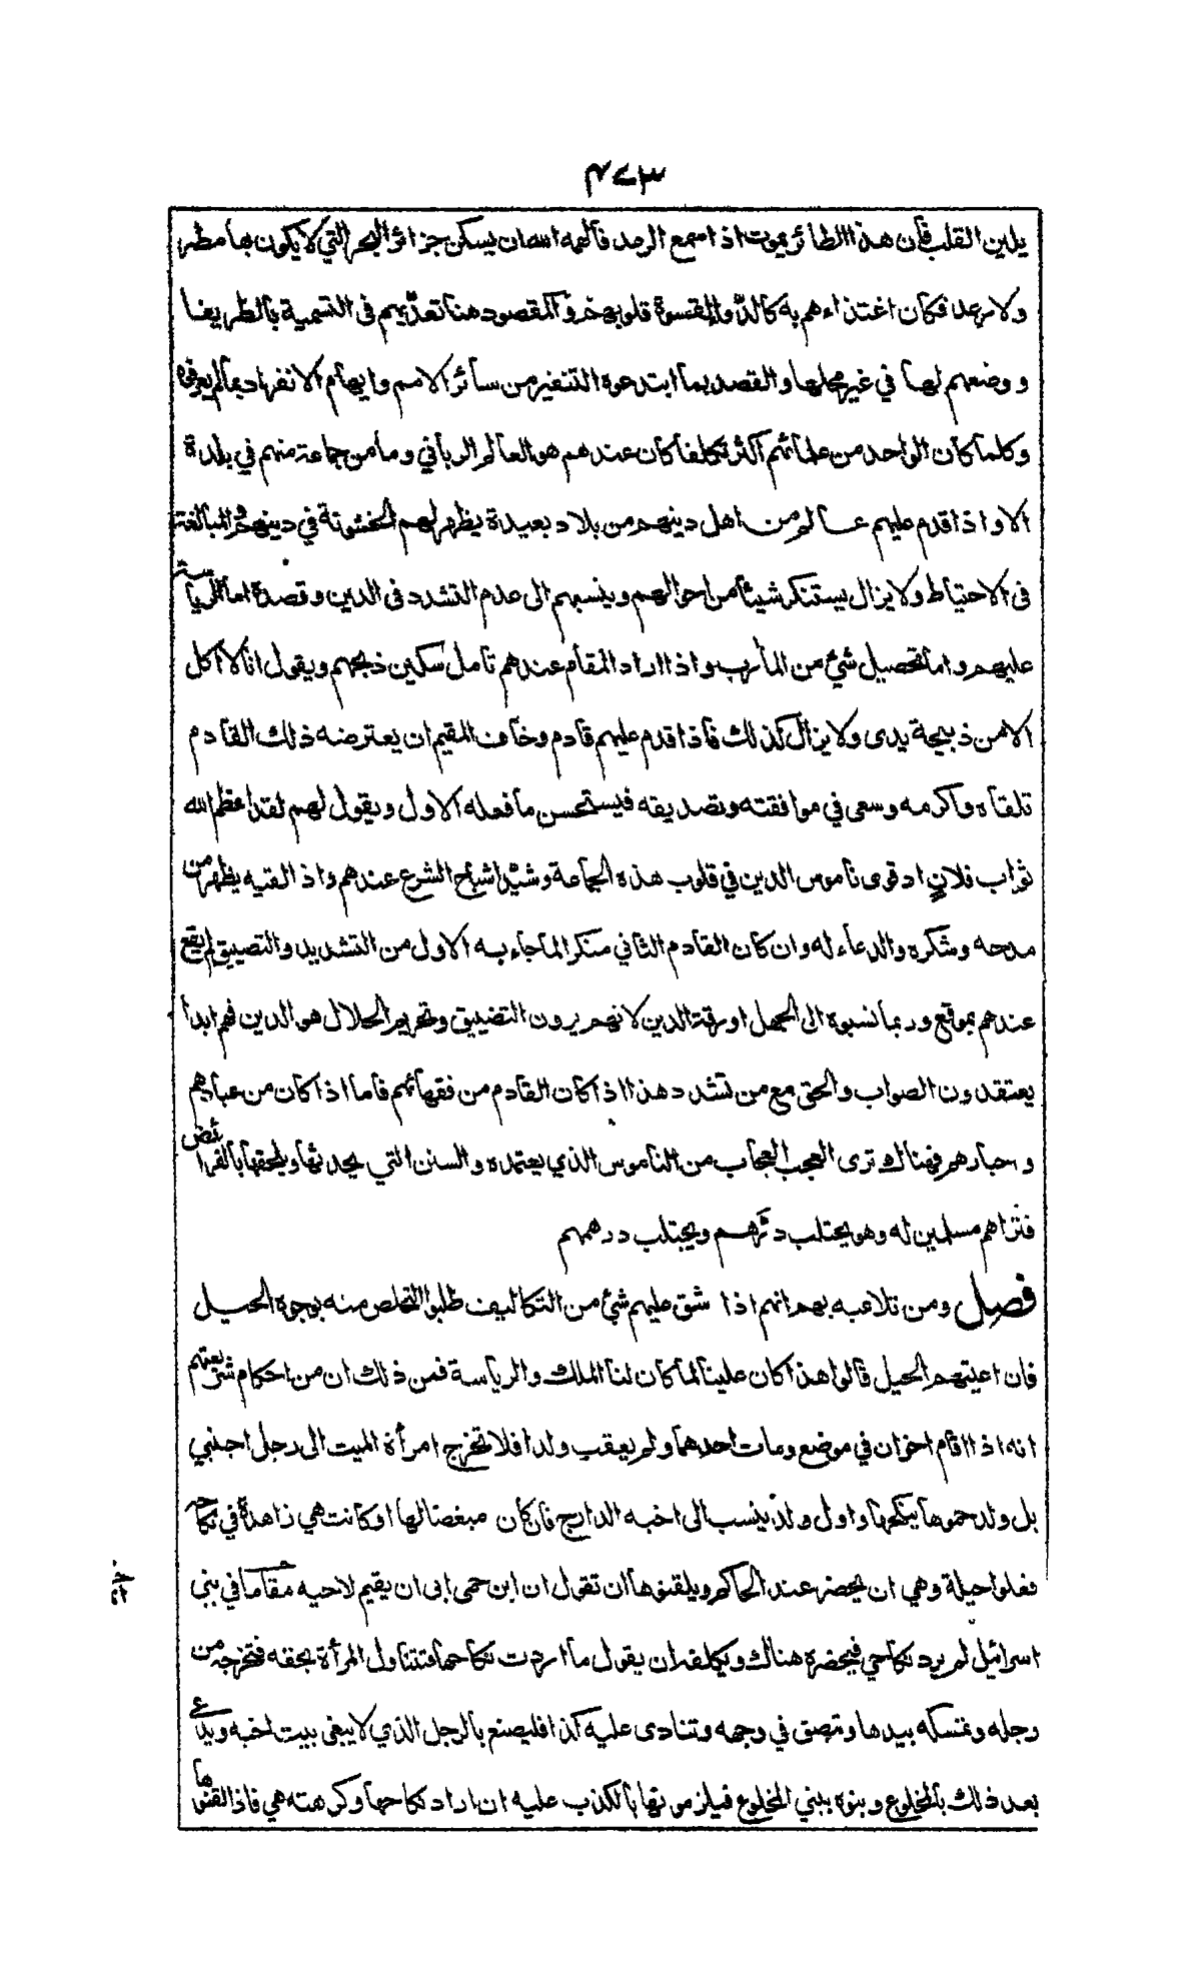 ٤٧٣
يلين القلب فان هذا الطائر يموت اذا سمع الرعد فالهمه الله ان يسكن جزائر البحر التي لا يكون بها مطر
ولا رعد فكان اغتذاءهم به كالدواء لقسوة قلوبهم والمقصود هنا تعدّيهم فى التسمية بالطريفا
ووضعهم لها في غير محلها والقصد بما ابتدعوه التنفير من سائر الامم وايهام الانفراد بما لم يعرفوه
وكلما كان الواحد من علمائهم اكثر تكلفا كان عندهم هو العالم الرباني وما من جماعة منهم في بلدة
الا واذا قدم عليهم عالم من اهل دينهم من بلاد بعيدة يظهر لهم الخشونة في دينهم والمبالغة
فى الاحتياط ولا يزال يستنكر شيئا من احوالهم وينسبهم الى عدم التشدد فى الدين وقصده اما الرياسة
عليهم واما تحصيل شئ من المأرب واذا اراد المقام عندهم تامل سكين ذبحهم ويقول انا لا آكل
الا من ذبيحة يدى ولا يزال كذلك فاذا قدم عليهم قادم وخاف المقيم ان يعترضه ذلك القادم
تلقاه واكرمه وسعى في موافقته وتصديقه فيستحسن ما فعله الاول ويقول لهم لقد اعظم الله
ثواب فلانٍ اذ قوى ناموس الدين في قلوب هذه الجماعة وشيّد اشباح الشرع عندهم واذا لقيه يظهر من
مدحه وشكره والدعاء له وان كان القادم الثاني منكرا لما جاء به الاول من التشديد والتضييق لم يقع
عندهم بموقع وربما نسبوه الى الجهل او رقة الدين لانهم يرون التضييق وتحريم الحلال هو الدين فهم ابدا
يعتقدون الصواب والحق مع من تشدد هذا اذا كان القادم من فقهائهم فاما اذا كان من عبادهم
واحبارهم فهناك ترى العجب العجاب من الناموس الذي يعتمده والسنن التي يحدثها ويلحقها بالفرائض
فتراهم مسلمين له وهو يحتلب درّهم ويجتلب درهمهم
فصل ومن تلاعبه بهم انهم اذا شق عليهم شئ من التكاليف طلبوا التخلص منه بوجوه الحيل
فان اعيتهم الحيل قالوا هذا كان علينا لما كان لنا الملك والرياسة فمن ذلك ان من احكام شريعتهم
انه اذا اقام اخوان في موضع ومات احدهما ولم يعقب ولدا فلا تخرج امرأة الميت الى رجل اجنبي
بل ولد حموها ينكحها واول ولد ينسب الى اخيه الدارج فان كان مبغضا لها او كانت هي زاهدة في نكاحه
فعلوا حيلة وهي ان يحضر عند الحاكم ويلقنوها ان تقول ان ابن حمى ابى ان يقيم لاخيه مقاما في بني
اسرائيل لم يرد نكاحي فيحضره هناك ويكلفه ان يقول ما اردت نكاحها فتتناول المرأة بحقه فتخرجه من
رجله وتمسكه بيدها وتبصق في وجهه وتنادى عليه كذا فليصنع بالرجل الذي لا يبغى بيت اخيه ويدعى
بعد ذلك بالمخلوع وبنوه ببني المخلوع فيلزمونها بالكذب عليه ان اراد نكاحها وكرهته هي فاذا لقنوها